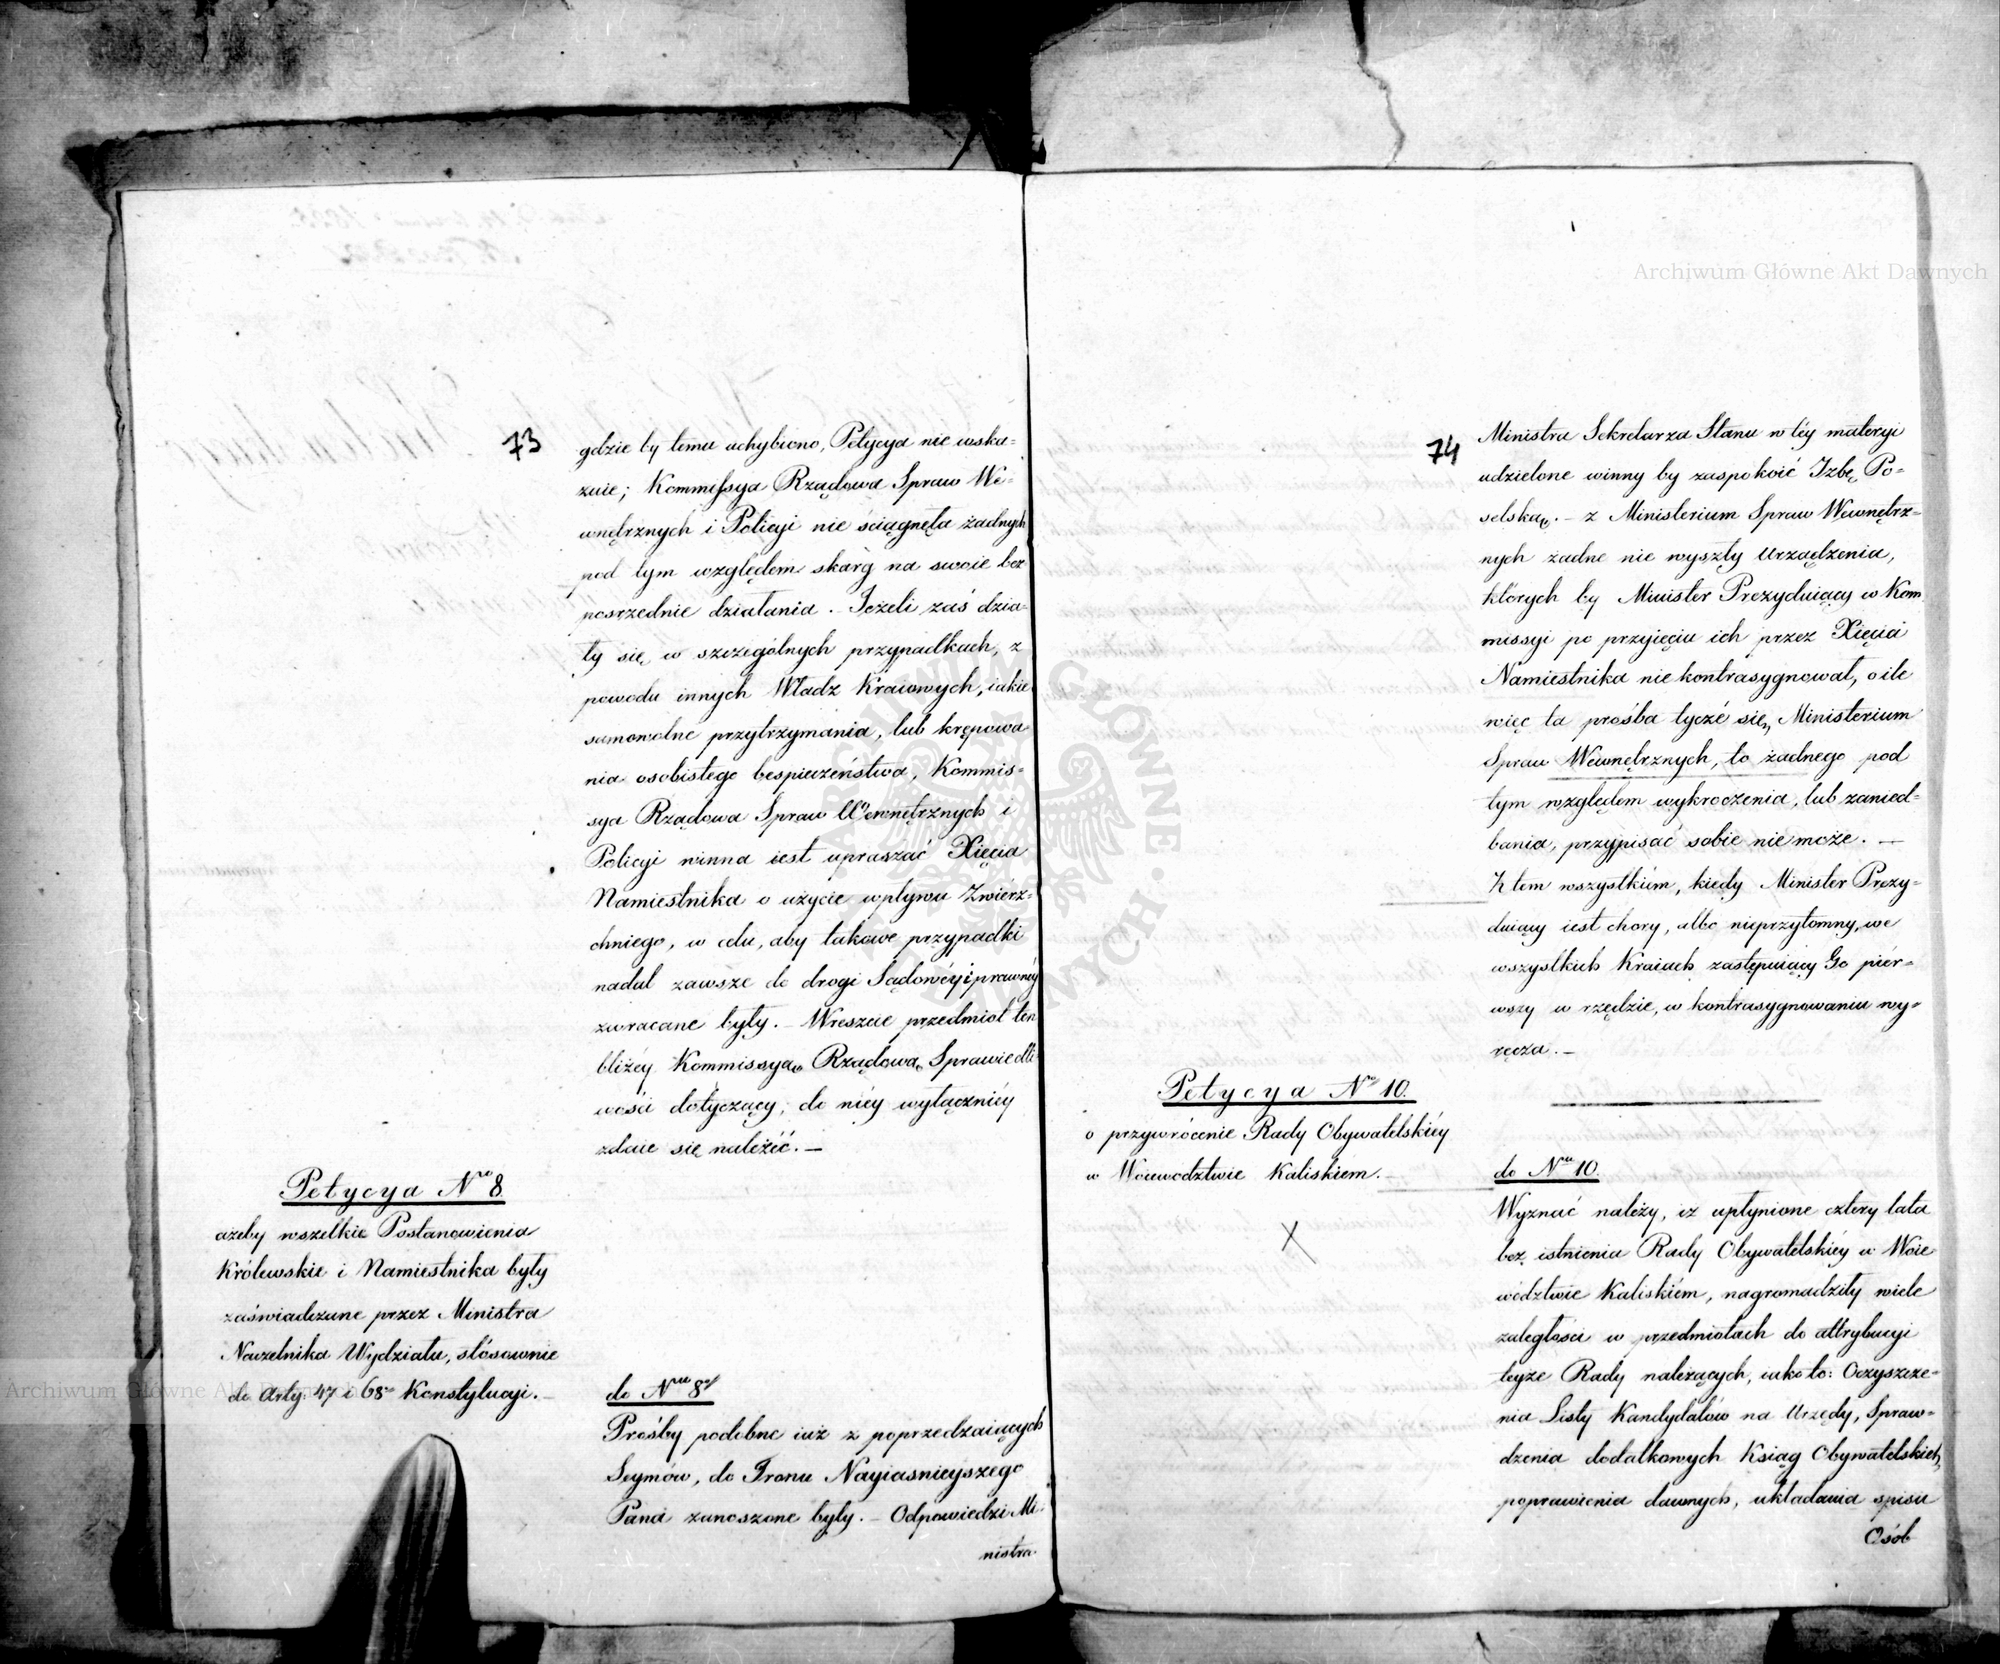 73
gdzie by temu uchybiono, Petycya nie wska=
zuie; Kommissya Rządowa Spraw We=
wnętrznych i Policyi nie ściągnęła żadnych
pod tym względem skarg na swoie bez
pośrzednie działania. - Jeżeli zaś dzia=
ły się w szczególnych przypadkach, z
powodu innych Władz Kraiowych, iakie
samowolne przytrzymania, lub krępowa
nia osobistego bespieczeństwa, Kommis=
sya Rządowa Spraw Wewnętrznych i
Policyi winna iest upraszać Xięcia
Namiestnika o użycie wpływu Zwierz=
chniego, w celu, aby takowe przypadki
nadal zawsze do drogi Sądowéy i prawnéy
zwracane były. - Wreszcie przedmiot ten
bliżéy Kommissyą Rządową Sprawiedli
wości dotyczący, do niéy wyłączniéy
zdaie się należéć. -
Petycya Nro 8.
ażeby wszelkie Postanowienia
Królewskie i Namiestnika były
zaświadczane przez Ministra
Naczelnika Wydziału, stósownie
do Arty: 47 i 68go Konstytucyi. -
do Nru 8o
Prośby podobne iuż z poprzedzaiących
Seymów, do Tronu Nayiasnieyszego
Pana zanoszone były. - Odpowiedzi Mi=
nistra
74
Ministra Sekretarza Stanu w téy materyi
udzielone winny by zaspokoić Izbę Po=
selską. - z Ministerium Spraw Wewnętrz=
nych żadne nie wyszły Urządzenia,
których by Minister Prezyduiący w Kom
missyi po przyjęciu ich przez Xięcia
Namiestnika nie kontrasygnował, o ile
więc ta prośba tyczé się Ministerium
Spraw Wewnętrznych, to żadnego pod
tym względem wykroczenia, lub zanied=
bania, przypisać sobie nie może. -
Z tem wszystkiém, kiedy Minister Prezy=
duiący iest chory, albo nieprzytomny, we
wszystkich Kraiach zastępuiący Go piér=
wszy w rzędzie, w kontrasygnowaniu wy=
ręcza. -
Petycya Nro 10.
o przywrócenie Rady Obywatelskiéy
w Woiewodztwie Kaliskiem. -
X
do Nru 10.
Wyznać należy, iż upłynione cztery lata
bez istnienia Rady Obywatelskiéy w Woie
wództwie Kaliskiém, nagromadziły wiele
zaległości w przedmiotach do attrybucyi
teyże Rady należących, iako to: Oczyszcze=
nia Listy Kandydatów na Urzędy, Spraw=
dzenia dodatkowych Ksiąg Obywatelskich,
poprawienia dawnych, układania spisu
Osób
Archiwum Główne Akt Dawnych
Archiwum Główne Akt Dawnych
ARCHIWUM GŁÓWNE AKT DAWNYCH